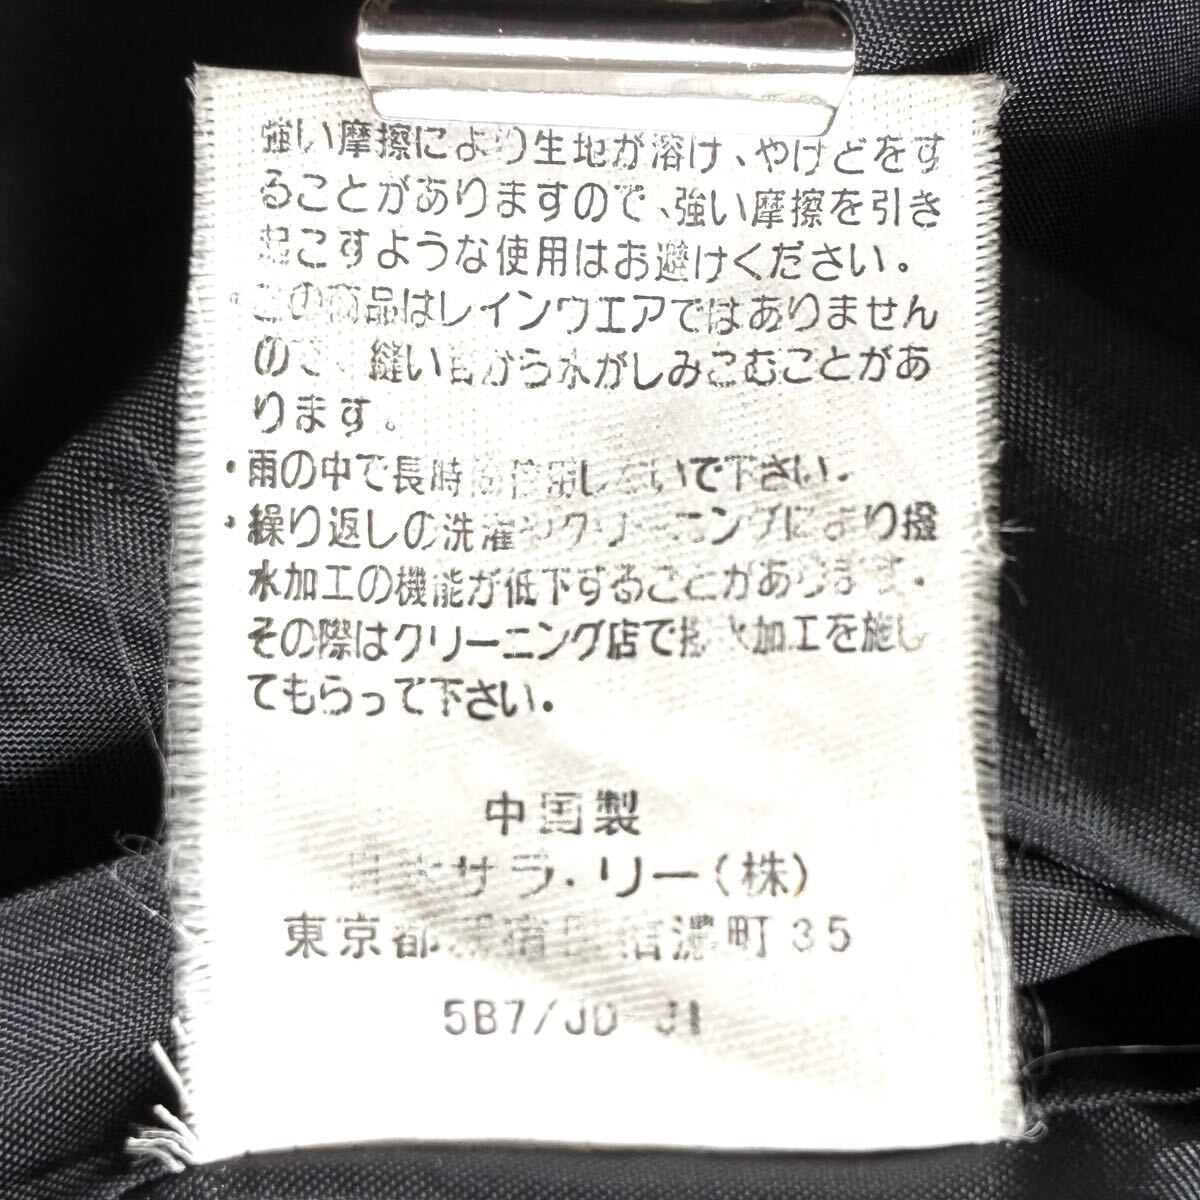 強い摩擦により生地が溶け、やけどをす
ることがありますので、強い摩擦を引き
起こすような使用はお避けください。
・この商品はレインウエアではありません
ので、縫い目から水がしみこむことがあ
ります。
・雨の中で長時間使用しないで下さい。
・繰り返しの洗濯やクリーニングにより撥
水加工の機能が低下することがあります。
その際はクリーニング店で撥水加工を施し
てもらって下さい。
中国製
サラ・リー(株)
東京都新宿区信濃町35
5B7/JD J1